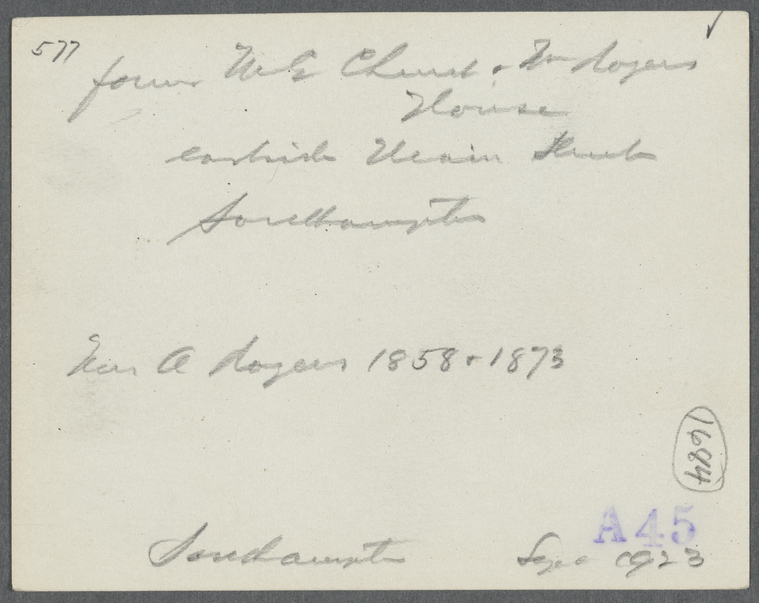 577
former M.E Church & Wm Rogers
House
eastside Main Street
Southampton
Wm A Rogers 1858 & 1873
1684
A45
Southampton Sept 1923